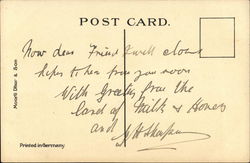 POST CARD.
Now dear Friend I will close
hopes to hear from you soon
With Greeting from the
land of Milk & Honey
and
Printed in Germany